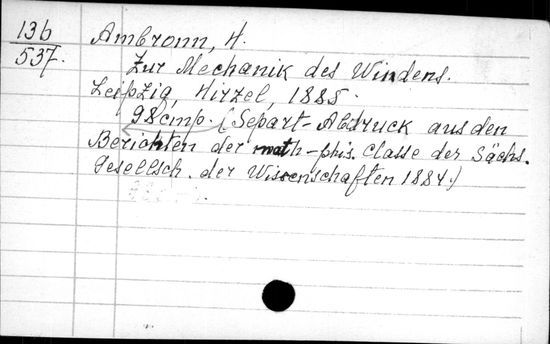 136
537.
Ambronn, H.
Zur Mechanik des Windens.
Leipzig, Hirzel, 1885.
98 cmp. (Separt-Abdruck aus den
Berichten der math-phis. Classe der Sächs.
Gesellsch. der Wissenschaften 1884.)